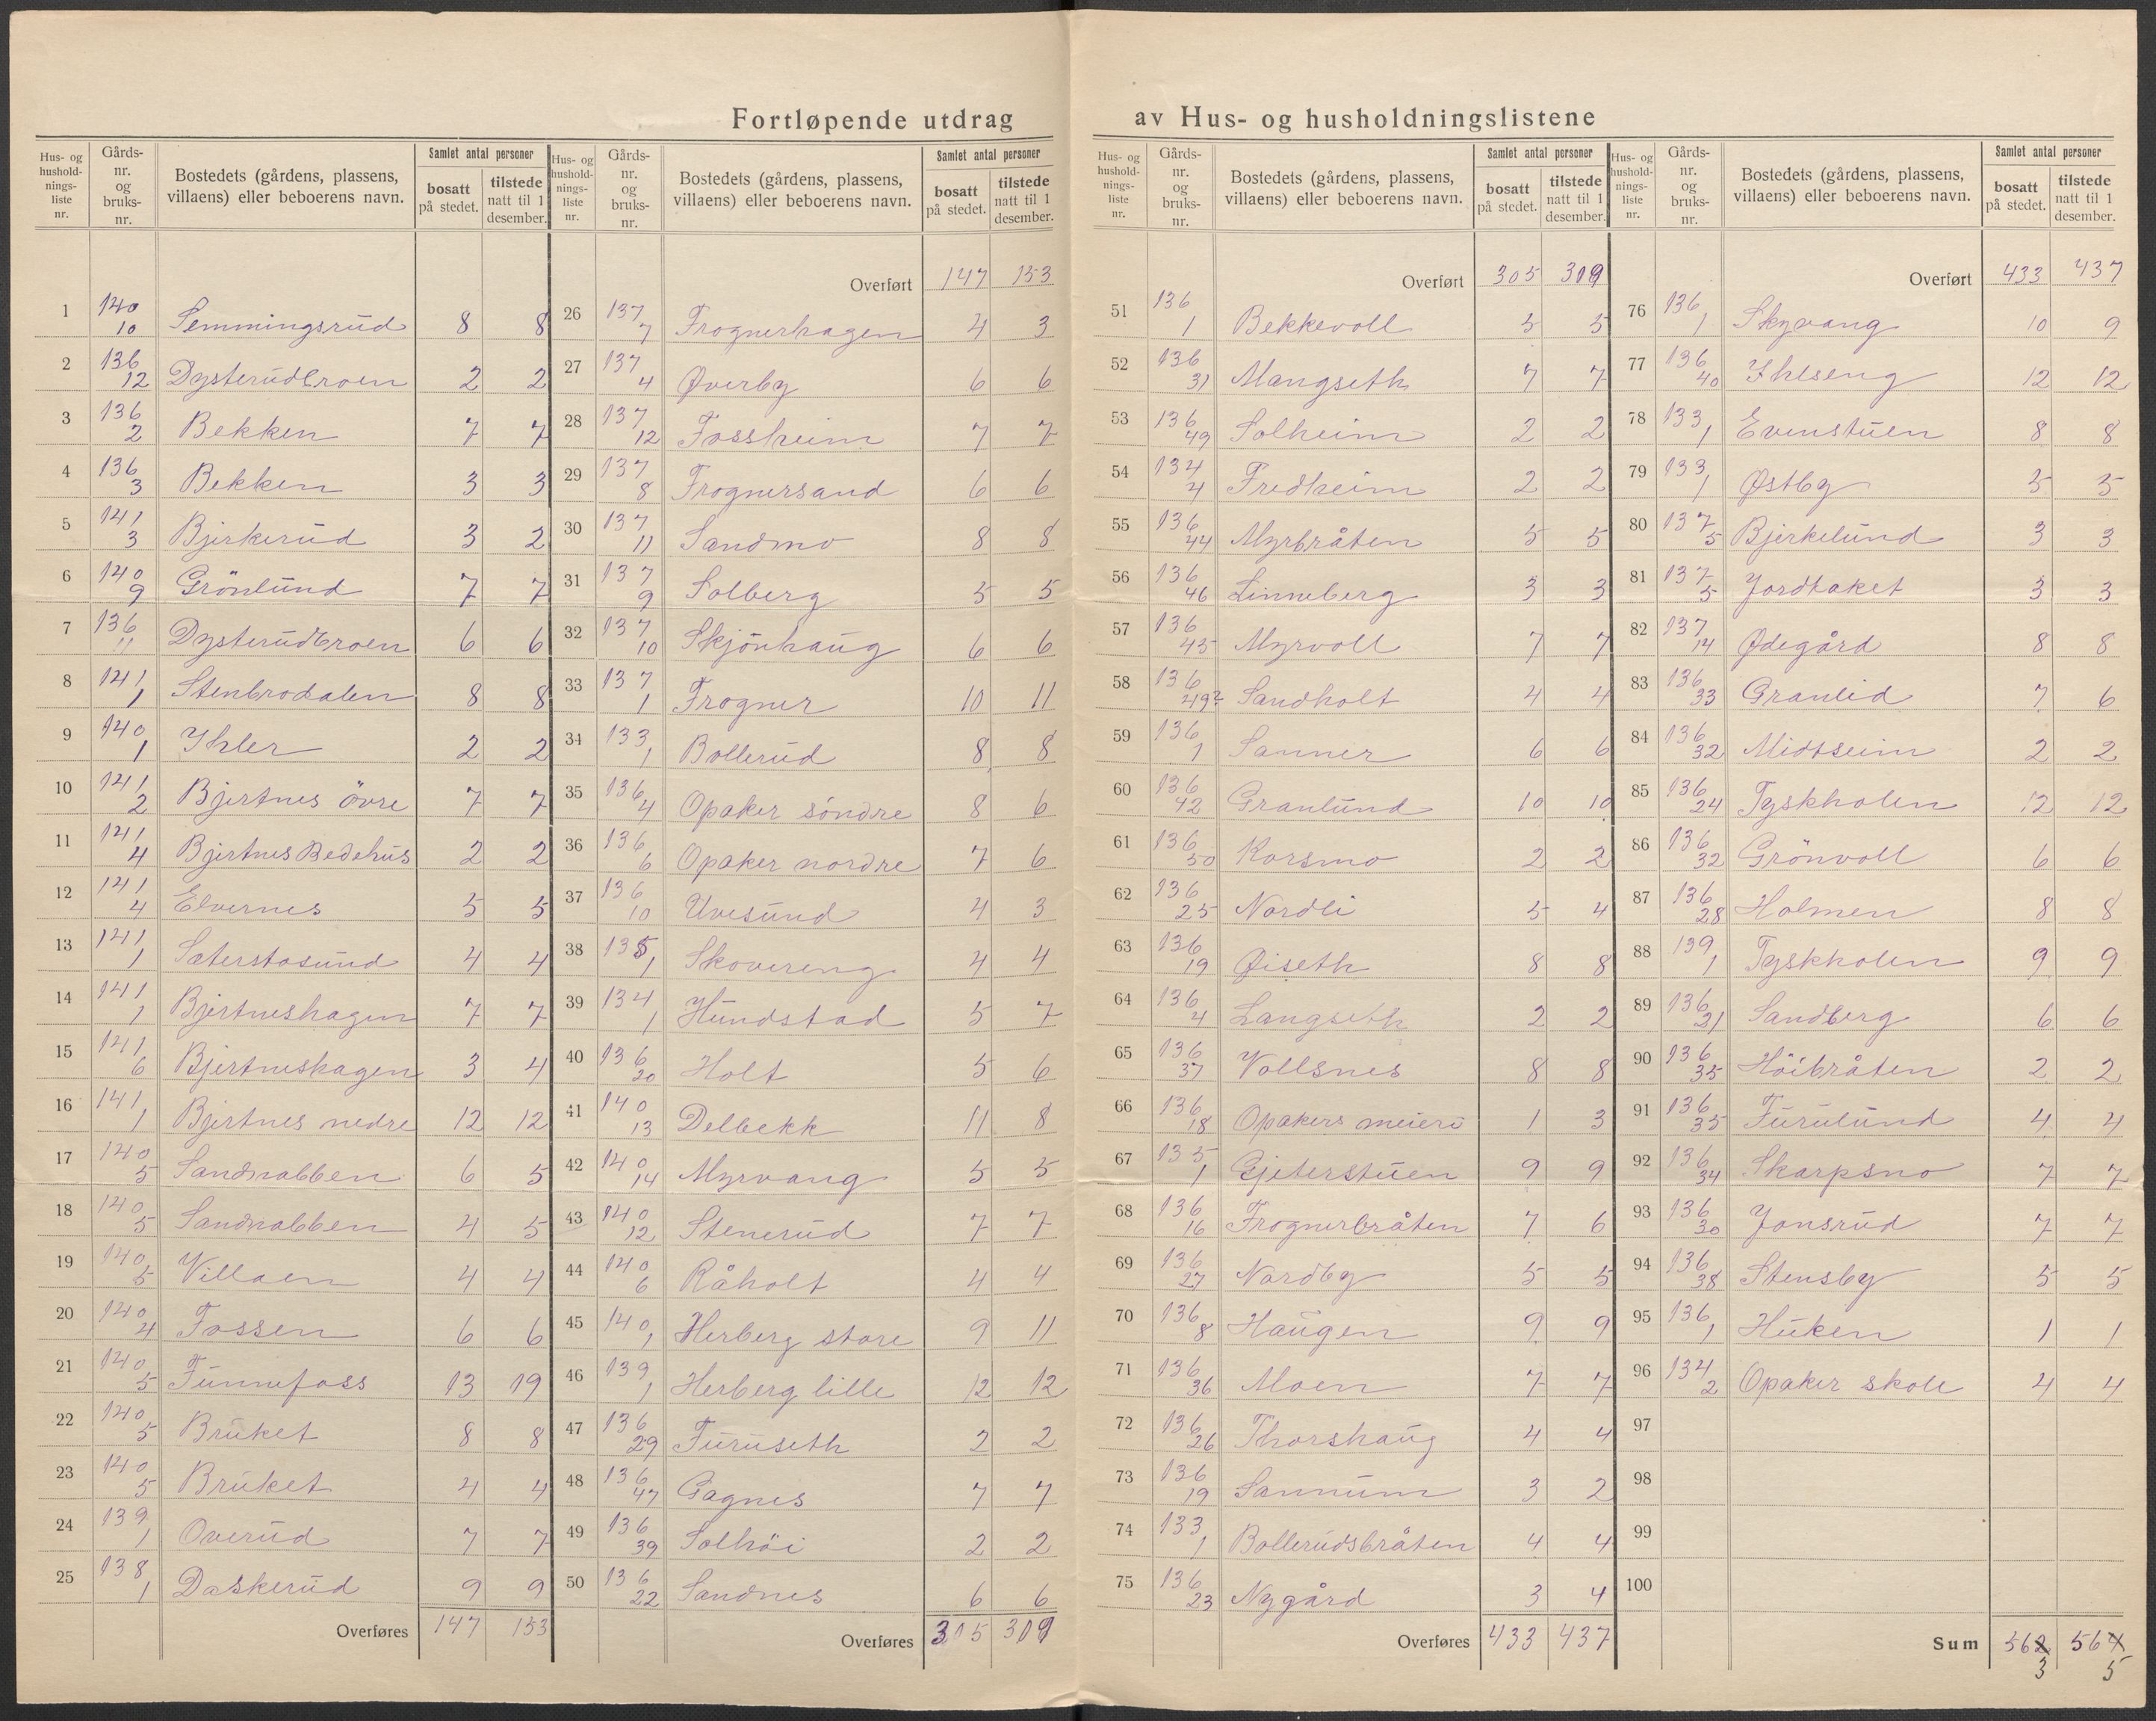 Fortløpende utdrag av Hus- og husholdningslistene
Hus- og hushold-nings-liste nr. | Gårds-nr. og bruks-nr. | Bostedets (gårdens, plassens, villaens) eller beboerens navn. | Samlet antal personer | bosatt på stedet. | tilstede natt til 1 desember.
1 140 10 Semmingsrud 8 8
2 136 12 Dysterudbroen 2 2
3 136 2 Bekken 7 7
4 136 3 Bekken 3 3
5 141 3 Bjerkerud 3 2
6 140 9 Grönlund 7 7
7 136 11 Dysterudbroen 6 6
8 141 1 Stenbrodalen 8 8
9 140 1 Ihler 2 2
10 141 2 Bjertnes övre 7 7
11 141 4 Bjertnes Bedehus 2 2
12 141 4 Elvernes 5 5
13 141 1 Sæterstosund 4 4
14 141 1 Bjertneshagen 7 7
15 141 6 Bjertneshagen 3 4
16 141 1 Bjertnes nedre 12 12
17 140 5 Sandnabben 6 5
18 140 5 Sandnabben 4 5
19 140 5 Villaen 4 4
20 140 4 Fossen 6 6
21 140 5 Funnefoss 13 19
22 140 5 Bruket 8 8
23 140 5 Bruket 4 4
24 139 1 Overud 7 7
25 138 1 Daskerud 9 9
Overføres 147 153
Hus- og hushold-nings-liste nr. | Gårds-nr. og bruks-nr. | Bostedets (gårdens, plassens, villaens) eller beboerens navn. | Samlet antal personer | bosatt på stedet. | tilstede natt til 1 desember.
Overført 147 153
26 137 7 Frognerhagen 4 3
27 137 4 Øverby 6 6
28 137 12 Fossheim 7 7
29 137 8 Frognersand 6 6
30 137 11 Sandmo 8 8
31 137 9 Solberg 5 5
32 137 10 Skjönhaug 6 6
33 137 1 Frogner 10 11
34 133 1 Bollerud 8 8
35 136 4 Opaker söndre 8 6
36 136 6 Opaker nordre 7 6
37 136 10 Uvesund 4 3
38 135 1 Skovereng 4 4
39 134 1 Hundstad 5 7
40 136 20 Holt 5 6
41 140 13 Delbekk 11 8
42 140 14 Myrvang 5 5
43 140 12 Stenerud 7 7
44 140 6 Råholt 4 4
45 140 1 Herberg store 9 11
46 139 1 Herberg lille 12 12
47 136 29 Furuseth 2 2
48 136 47 Gagnes 7 7
49 136 39 Solhöi 2 2
50 136 22 Sandnes 6 6
Overføres 305 309
Hus- og hushold-nings-liste nr. | Gårds-nr. og bruks-nr. | Bostedets (gårdens, plassens, villaens) eller beboerens navn. | Samlet antal personer | bosatt på stedet. | tilstede natt til 1 desember.
Overført 305 309
51 136 1 Bekkevoll 5 5
52 136 31 Mangseth 7 7
53 136 49 Solheim 2 2
54 134 4 Fredheim 2 2
55 136 44 Myrbråten 5 5
56 136 46 Linneberg 3 3
57 136 45 Myrvoll 7 7
58 136 Sandholt 4 4
59 136 1 Sanner 6 6
60 136 42 Granlund 10 10
61 136 50 Korsmo 2 2
62 136 25 Nordli 5 4
63 136 19 Øiseth 8 8
64 136 4 Langseth 2 2
65 136 37 Vollsnes 8 8
66 136 18 Opakers meieri 1 3
67 135 1 Gjeterstuen 9 9
68 136 16 Frognerbråten 7 6
69 136 27 Nordby 5 5
70 136 8 Haugen 9 9
71 136 36 Moen 7 7
72 136 26 Thorshaug 4 4
73 136 19 Sannum 3 2
74 133 1 Bollerudsbråten 4 4
75 136 23 Nygård 3 4
Overføres 433 437
Hus- og hushold-nings-liste nr. | Gårds-nr. og bruks-nr. | Bostedets (gårdens, plassens, villaens) eller beboerens navn. | Samlet antal personer | bosatt på stedet. | tilstede natt til 1 desember.
Overført 433 437
76 136 1 Skyvang 10 9
77 136 40 Ihlseng 12 12
78 133 1 Evenstuen 8 8
79 133 1 Østby 5 5
80 137 5 Bjerkelund 3 3
81 137 5 Jordtaket 3 3
82 137 14 Ødegård 8 8
83 136 33 Granlid 7 6
84 136 32 Midtseim 2 2
85 136 24 Tyskholen 12 12
86 136 32 Grönvoll 6 6
87 136 28 Holmen 8 8
88 139 1 Tyskholen 9 9
89 136 21 Sandberg 6 6
90 136 35 Höibråten 2 2
91 136 35 Furulund 4 4
92 136 34 Skarpsno 7 7
93 136 30 Jonsrud 7 7
94 136 38 Stensby 5 5
95 136 1 Huken 1 1
96 134 2 Opaker skole 4 4
97
98
99
100
Sum 562 564
3 5